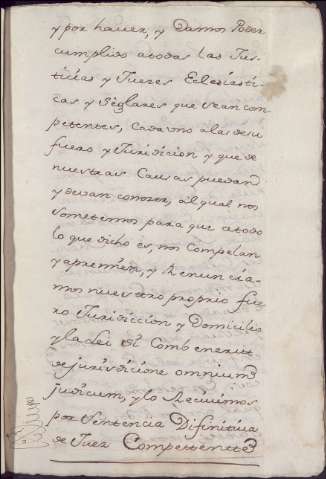 y por hauer, y Damos Poder
cumplido atodas las Jus-
ticias y Jueses Eclesiasti-
cas y Seglares que sean com-
petentes, cada uno alas de su
fuero y Juridicion y que de
nuestras Causas puedan
y devan conoser, al qual nos
sometemos para que atodo
lo que dicho es, nos compelan
y apremien, y Renuncia-
mos nuestro proprio fue-
ro Jurisdiccion y Domicilio
y la lei Si Combenerit
de jurisdicione omnium
judicum, y lo Recivimos
por Sentencia Difinitiva
de Juez Competente